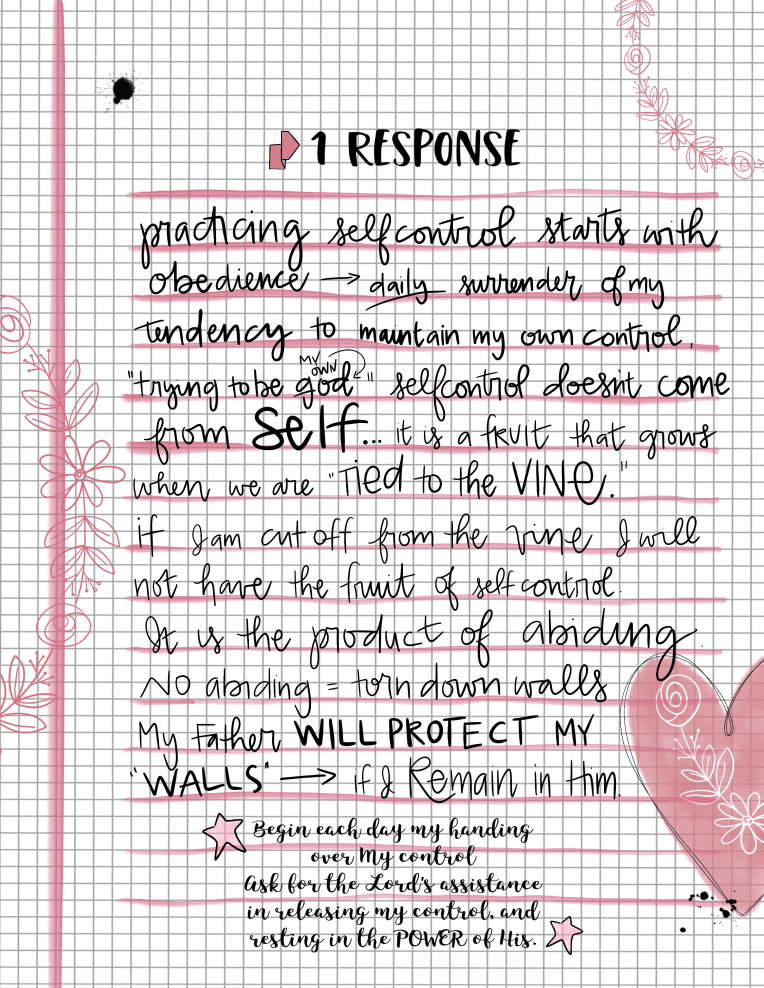 1 RESPONSE
practicing selfcontrol starts with
obedience → daily surrender of my
tendency to maintain my own control.
my own
"trying to be god" selfcontrol doesn't come
from self... it is a fruit that grows
when we are "Tied to the VINE."
if I am cut off from the vine I will
not have the fruit of self control.
It is the product of abiding.
NO abiding = torn down walls
My Father WILL PROTECT MY
"WALLS" → if I Remain in Him.
Begin each day my handing
over My control
Ask for the Lord's assistance
in releasing my control, and
resting in the POWER of His.